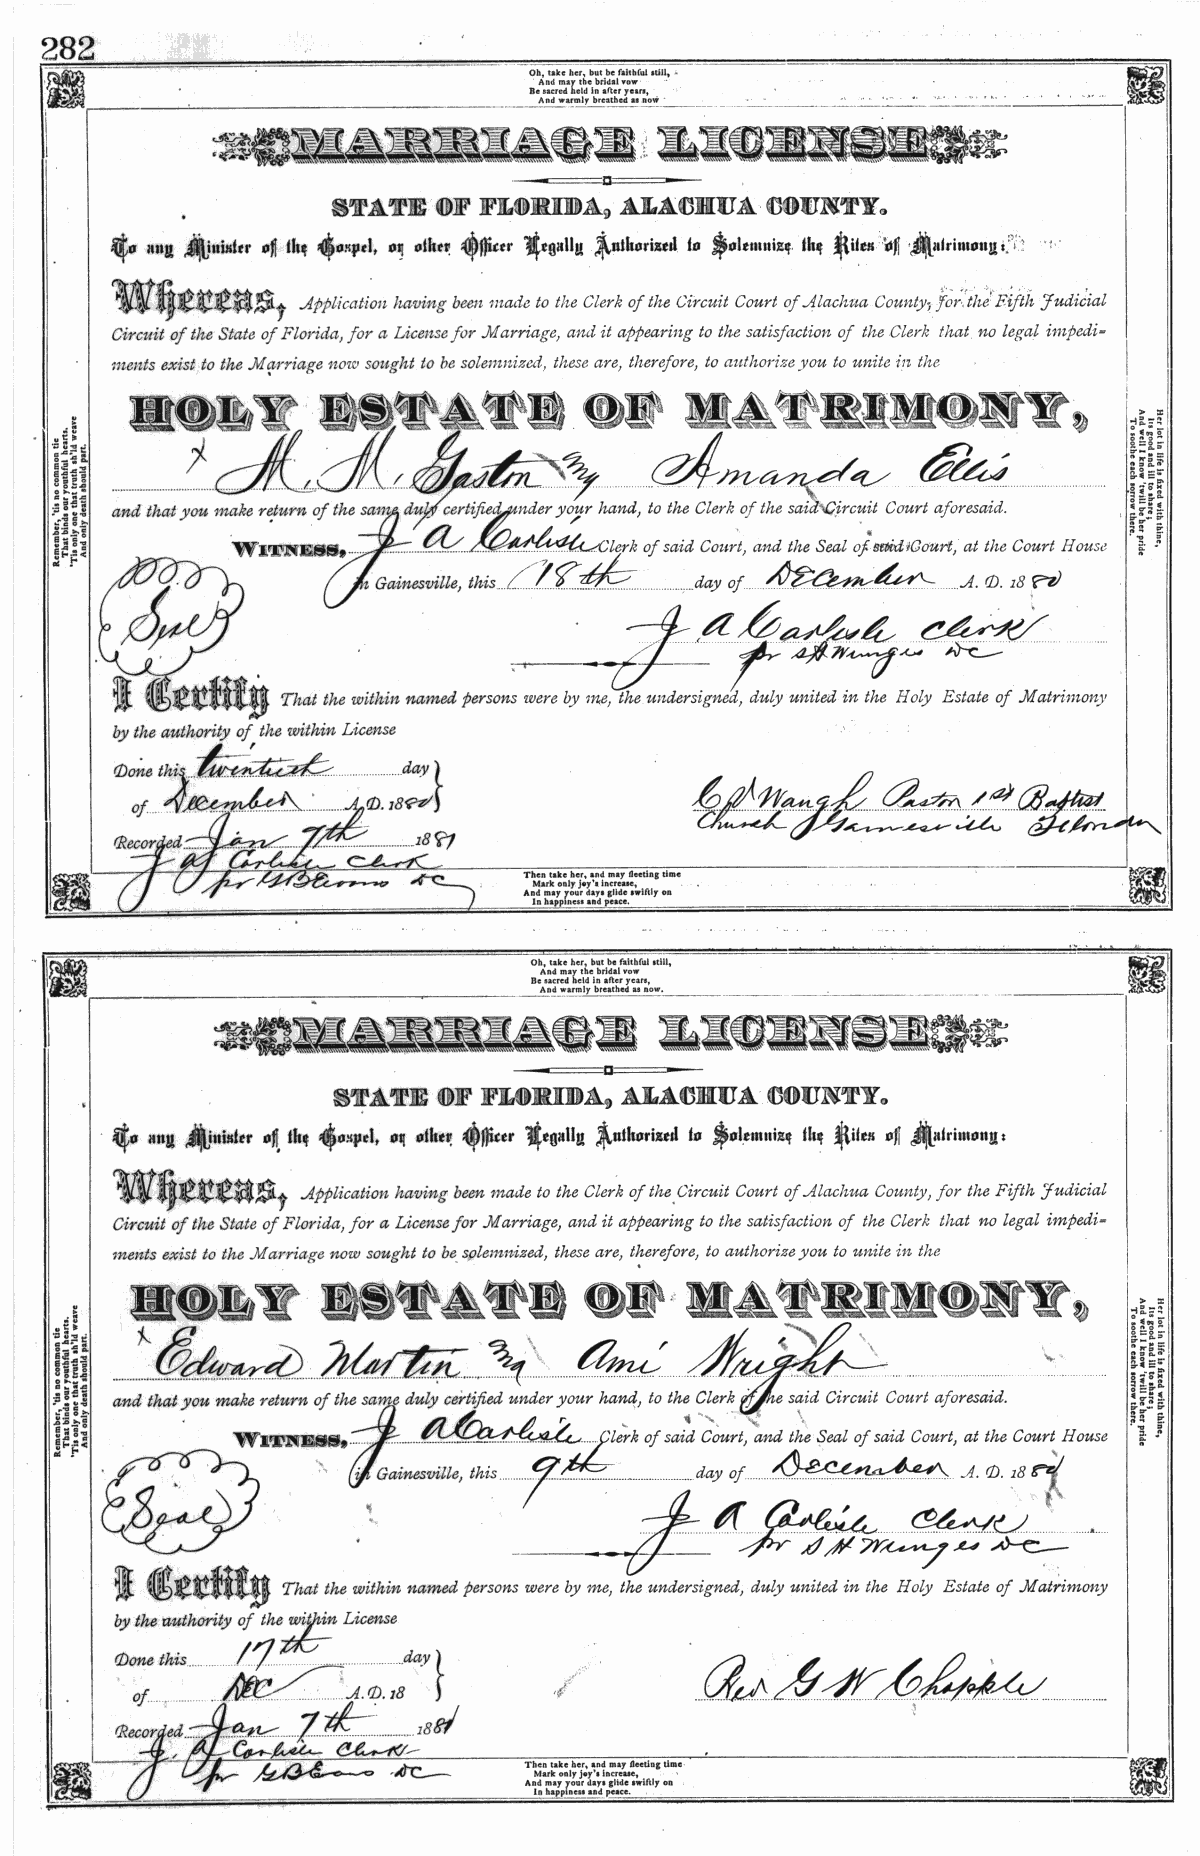 282
Oh, take her, but be faithful still,
And may the bridal vow
Be sacred held in after years,
And warmly breathed as now
MARRIAGE LICENSE
STATE OF FLORIDA, ALACHUA COUNTY.
To any Minister of the Gospel, or other Officer Legally Authorized to Solemnize the Rites of Matrimony:
Whereas, Application having been made to the Clerk of the Circuit Court of Alachua County, for the Fifth Judicial
Circuit of the State of Florida, for a License for Marriage, and it appearing to the satisfaction of the Clerk that no legal impedi=
ments exist to the Marriage now sought to be solemnized, these are, therefore, to authorize you to unite in the
HOLY ESTATE OF MATRIMONY,
x
M. Gaston Amanda Ellis
and that you make return of the same duly certified under your hand, to the Clerk of the said Circuit Court aforesaid.
WITNESS, J A Carlisle Clerk of said Court, and the Seal of said Court, at the Court House
in Gainesville, this 18th day of December A. D. 1880
Seal
J A Carlisle Clerk
pr S H DC
I Certify That the within named persons were by me, the undersigned, duly united in the Holy Estate of Matrimony
by the authority of the within License
Done this twentieth day
of December A. D. 1880
C V Waugh Pastor 1st Baptist
Church Gainesville Florida
Recorded Jan 7th 1881
J A Carlisle Clerk
pr G B Evans DC
Remember, 'tis no common tie
That binds our youthful hearts.
'Tis only one that truth sh'ld weave
And only death should part.
Her lot in life is fixed with thine,
Its good and ill to share;
And well I know 'twill be her pride
To soothe each sorrow there.
Then take her, and may fleeting time
Mark only joy's increase,
And may your days glide swiftly on
In happiness and peace.
Oh, take her, but be faithful still,
And may the bridal vow
Be sacred held in after years,
And warmly breathed as now.
MARRIAGE LICENSE
STATE OF FLORIDA, ALACHUA COUNTY.
To any Minister of the Gospel, or other Officer Legally Authorized to Solemnize the Rites of Matrimony:
Whereas, Application having been made to the Clerk of the Circuit Court of Alachua County, for the Fifth Judicial
Circuit of the State of Florida, for a License for Marriage, and it appearing to the satisfaction of the Clerk that no legal impedi=
ments exist to the Marriage now sought to be solemnized, these are, therefore, to authorize you to unite in the
HOLY ESTATE OF MATRIMONY,
x
Edward Martin Ami Wright
and that you make return of the same duly certified under your hand, to the Clerk of the said Circuit Court aforesaid.
WITNESS, J A Carlisle Clerk of said Court, and the Seal of said Court, at the Court House
in Gainesville, this 9th day of December A. D. 1880
Seal
J A Carlisle Clerk
pr S H DC
I Certify That the within named persons were by me, the undersigned, duly united in the Holy Estate of Matrimony
by the authority of the within License
Done this 17th day
of Dec A. D. 18
Rev G W Chapple
Recorded Jan 7th 1881
J. A Carlisle Clerk
pr G B Evans DC
Remember, 'tis no common tie
That binds our youthful hearts.
'Tis only one that truth sh'ld weave
And only death should part.
Her lot in life is fixed with thine,
Its good and ill to share;
And well I know 'twill be her pride
To soothe each sorrow there.
Then take her, and may fleeting time
Mark only joy's increase,
And may your days glide swiftly on
In happiness and peace.